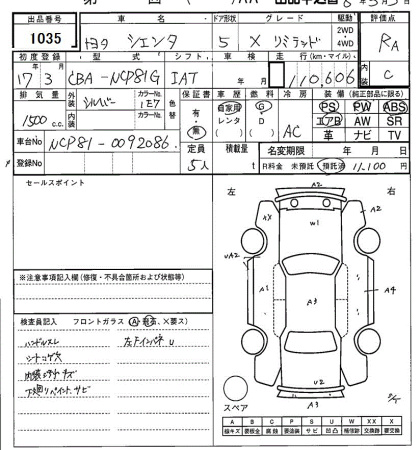 出品番号 車名 ドア形状 グレード 駆動 評価点
1035 トヨタ シエンタ 5 X リミテッド 2WD・4WD RA
初度登録 型式 シフト 車検 走行(km・マイル) 内装
17年 3月 CBA-NCP81G IAT 年 月 110,606 C
排気量 外装 シルバー カラーNo. 1E7 色替 保証書 車歴 燃料 冷房 装備(純正部品に限る)
1500 c.c. 内装 カラーNo. 有・無 自家用 レンタ G・D AC PS PW ABS
エアB AW SR
革 ナビ TV
車台No NCP81-0092086 定員 積載量 名変期限 年 月 日
登録No 5人 t R料金 未預託 預託済 11,100円
セールスポイント
左 右
A2
XX
W1
A2
UA2
A1
A3
A4
U2
A3
スペア
※注意事項記入欄(修復・不具合箇所および状態等)
検査員記入 フロントガラス (A・飛石、X要ス)
ハンドルスレ 左ドインパネ U
シートコゲ穴
内装ヨゴレ キズ
下廻りペイント、サビ
A B C P S U W X XX
線キズ 要板金 腐蝕 要塗装 サビ 凹凸 補修跡 交換跡 要交換